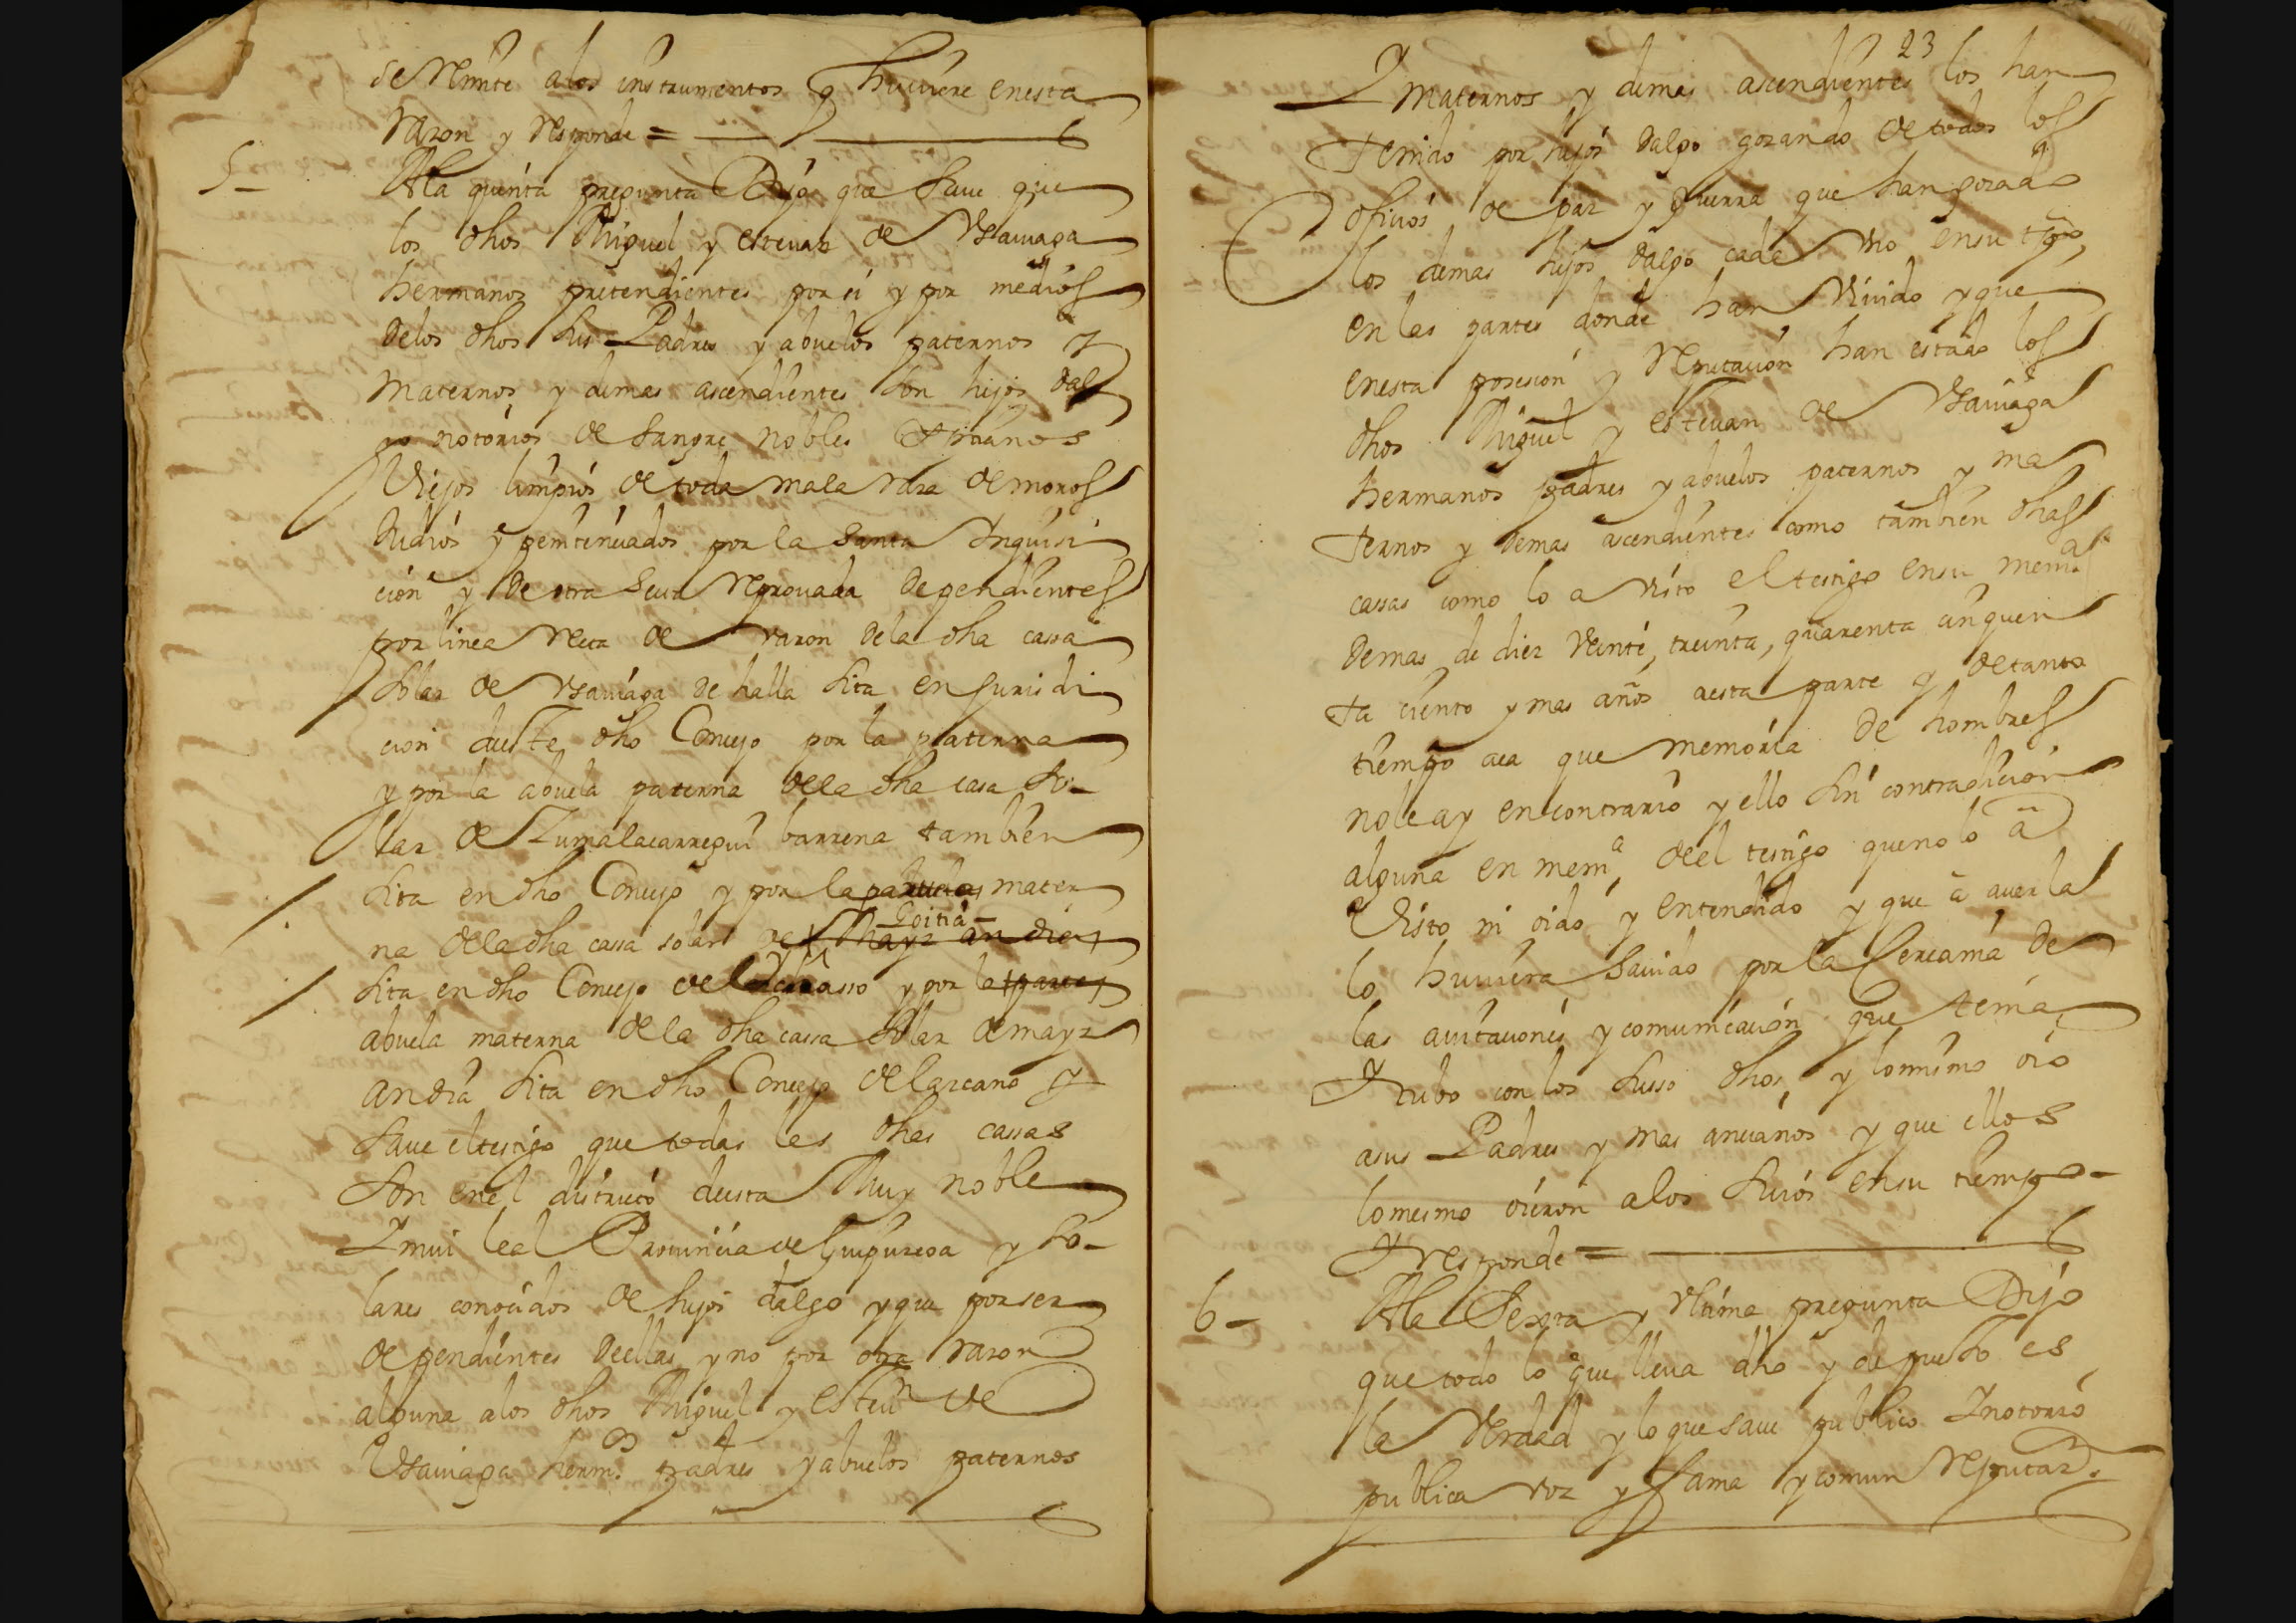 se Remite a los instrumentos q huviere enesta
Razon y Responde =
5_ Ala quinta pregunta Dijo que save que
los dhos Miguel y estevan de Vsaviaga
hermanos pretendientes por si y por medios
delos dhos sus Padres y abuelos paternos y
maternos y demas ascendientes son hijos dal
go notorios de sangre nobles Xptianos
Viejos limpios de toda mala raza de moros
Judios y penitenciados por la santa Inquisi
cion y de otra secta Reprouada dependientes
por linea Recta de varon dela dha cassa
solar de Vsaviaga de halla sita en Jurisdi
cion deeste dho Concejo por la paterna
y por la abuela paterna dela dha casa so-
lar de Zumalacarregui barrena tambien
sita en dho Concejo y por la mater
na dela dha cassa solar de Goitia
sita en dho Concejo de y por la
abuela materna de la dha cassa solar de mayz
andia sita en dho Concejo de lazcano y
save eltestigo que todas las dhas cassas
son enel distrito deesta Muy noble
Y mui leal Provincia de Guipuzcoa y so-
lares conocidos de hijos dalgo y que por ser
dependientes deellas y no por otra razon
alguna alos dhos Miguel y estevn de
Vsaviaga hermos padres y abuelos paternos
23
Y maternos y demas ascendientes los han
tenido por hijos dalgo gozando de todos los
oficios de paz y guerra que han gozado
los demas hijos dalgo cada vno ensu tpo,
en las partes donde han vivido y que
enesta posesion y Reputacion han estado los
dhos Miguel y estevan de Vsaviaga
hermanos padres y abuelos paternos y ma
ternos y demas ascendientes como tambien dhas
cassas como lo a visto el testigo ensu mema
demas de diez veinte, treinta, quarenta cinquen
ta ciento y mas años aesta parte y detanto
tiempo aca que memoria de hombres
nole ay encontrario y ello sin contradicion
alguna en mema, deel testigo quenolo a
visto ni oido y entendido y que a averla
lo huviera savido por la cercania de
las avitaciones y comunicacion que tenia
Y tubo con los susso dhos, y lo mismo oio
asus Padres y mas ancianos y que ellos
lo mesmo oieron alos suios ensu tiempo-
Y responde =
6- Ala sexta y vltima pregunta Dijo
que todo lo que lleva dho y depuesto es
la Verdad y lo que save publico Y notorio
publica voz y fama y comun Reputaz.n